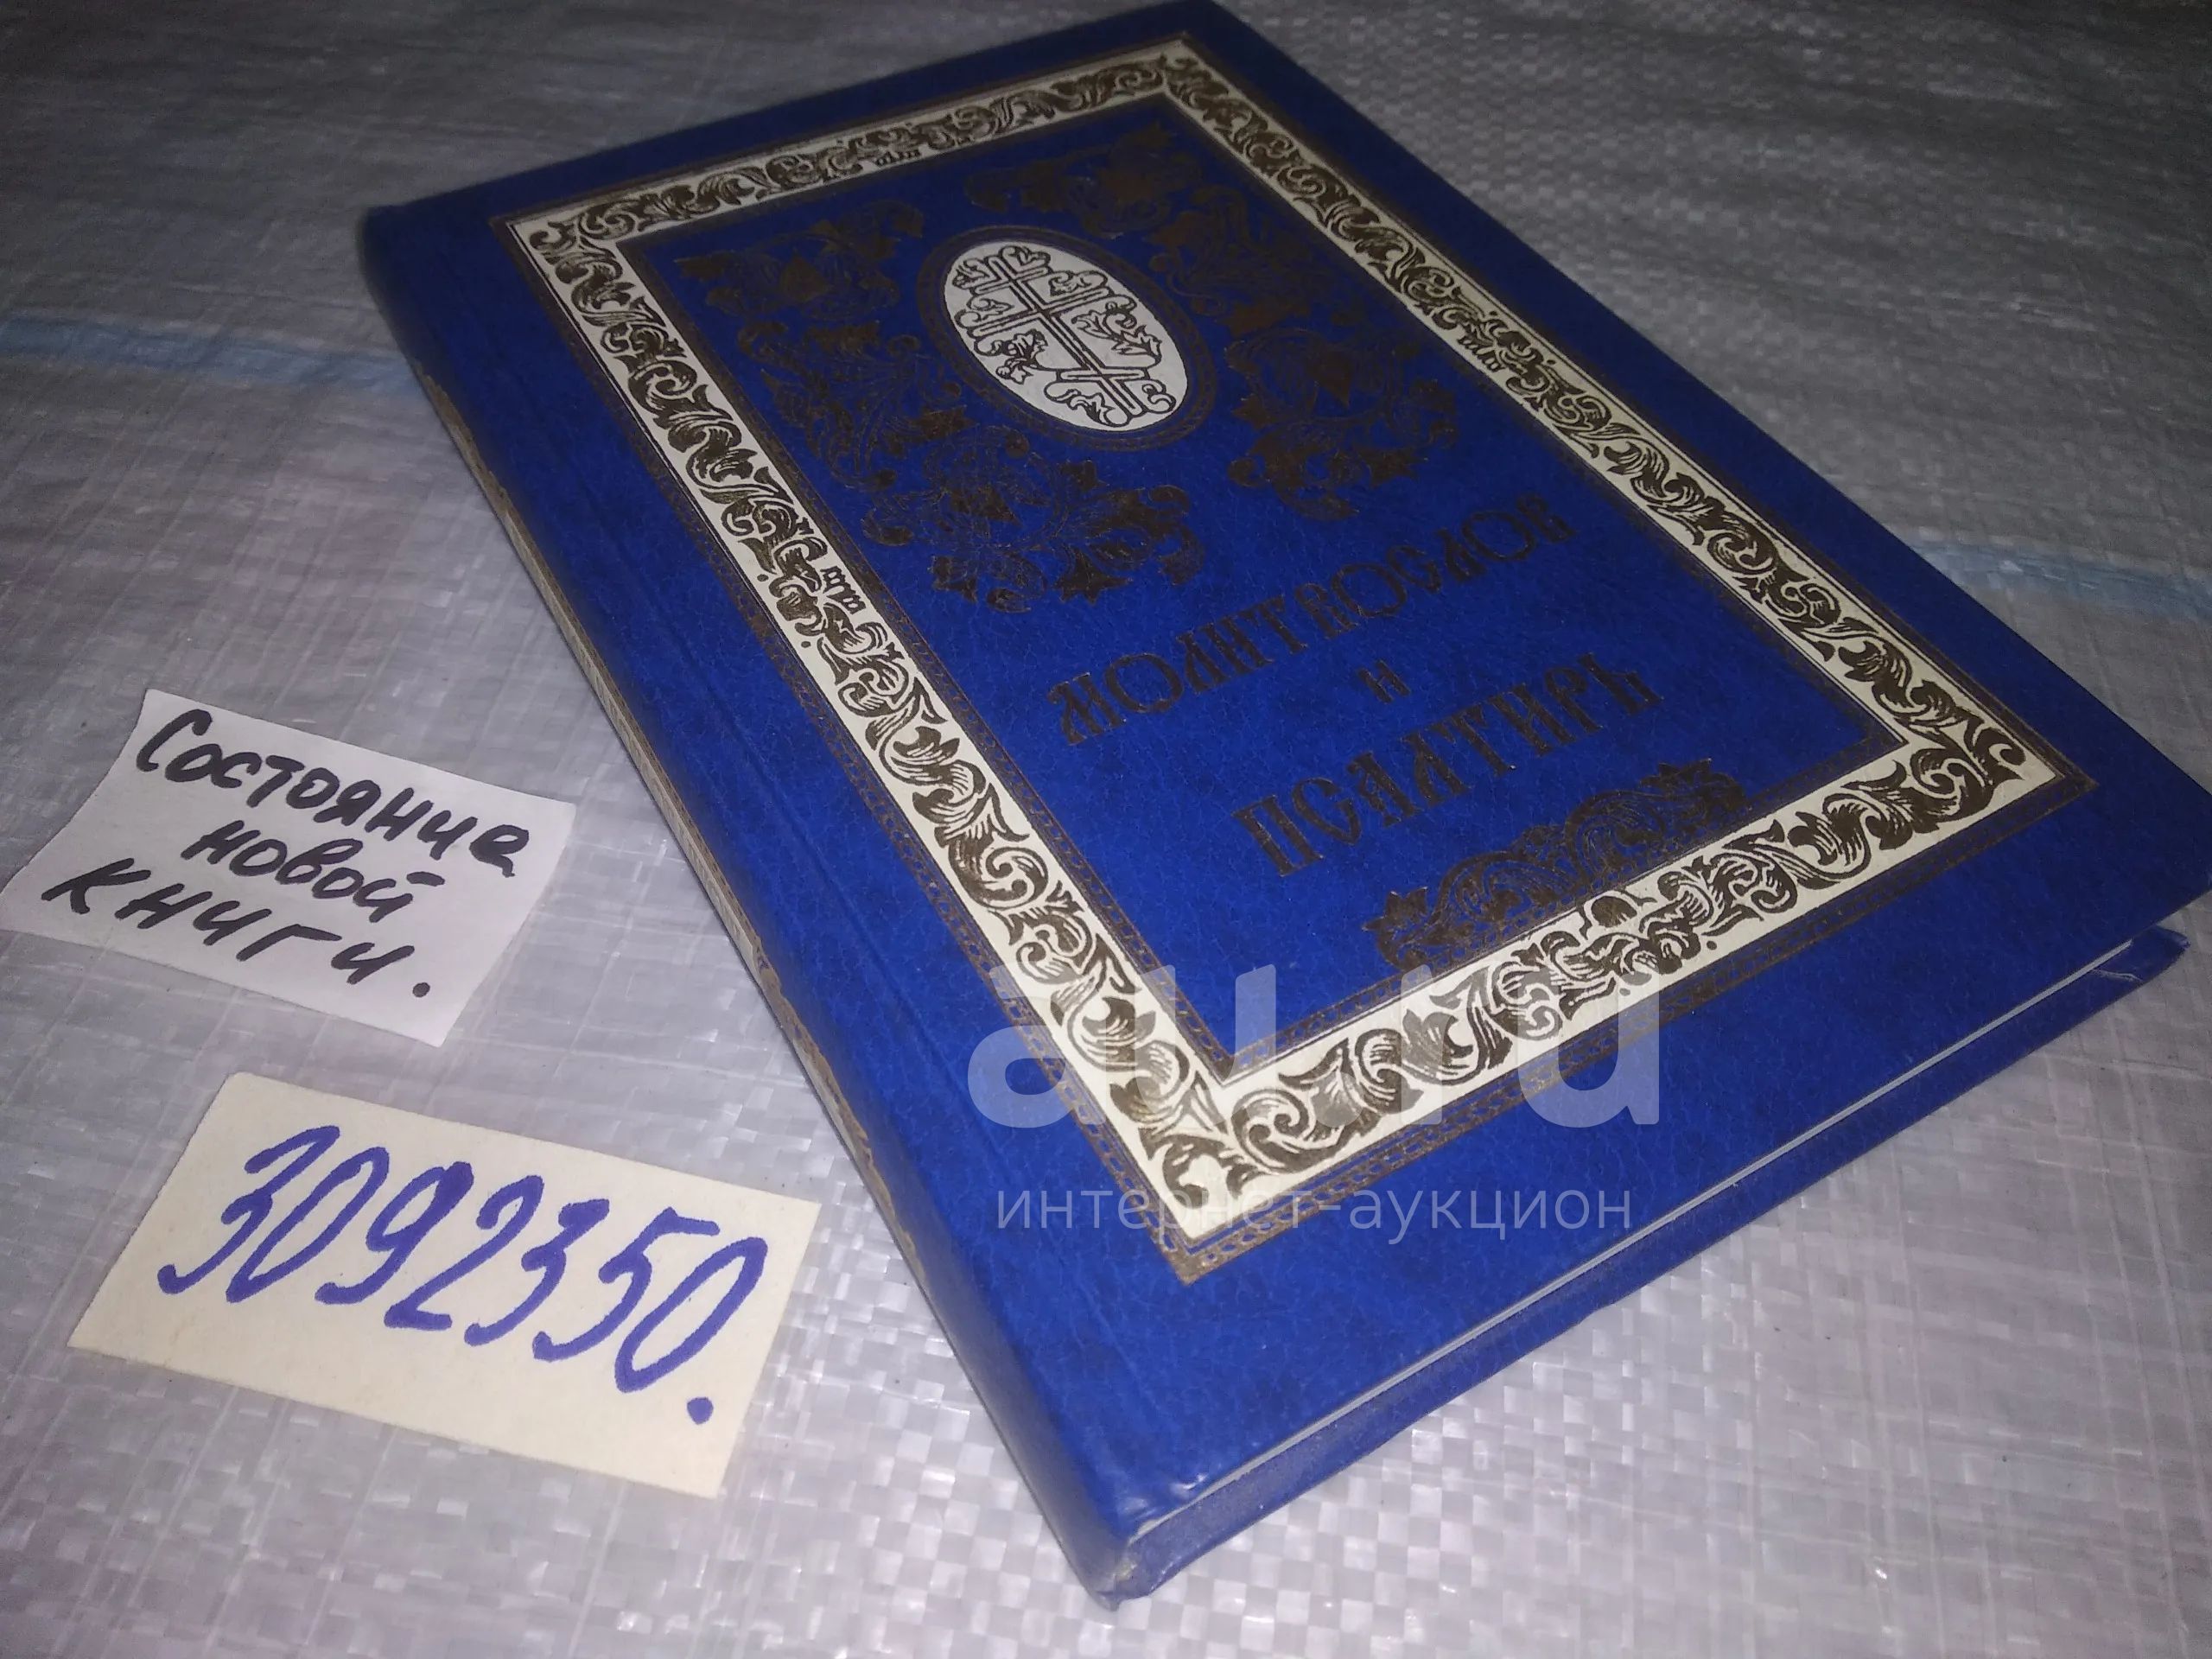 МОЛИТВОСЛОВ
И
ПСАЛТИРЬ
Состояние
новой
книги.
3092350.
au.ru
интернет-аукцион